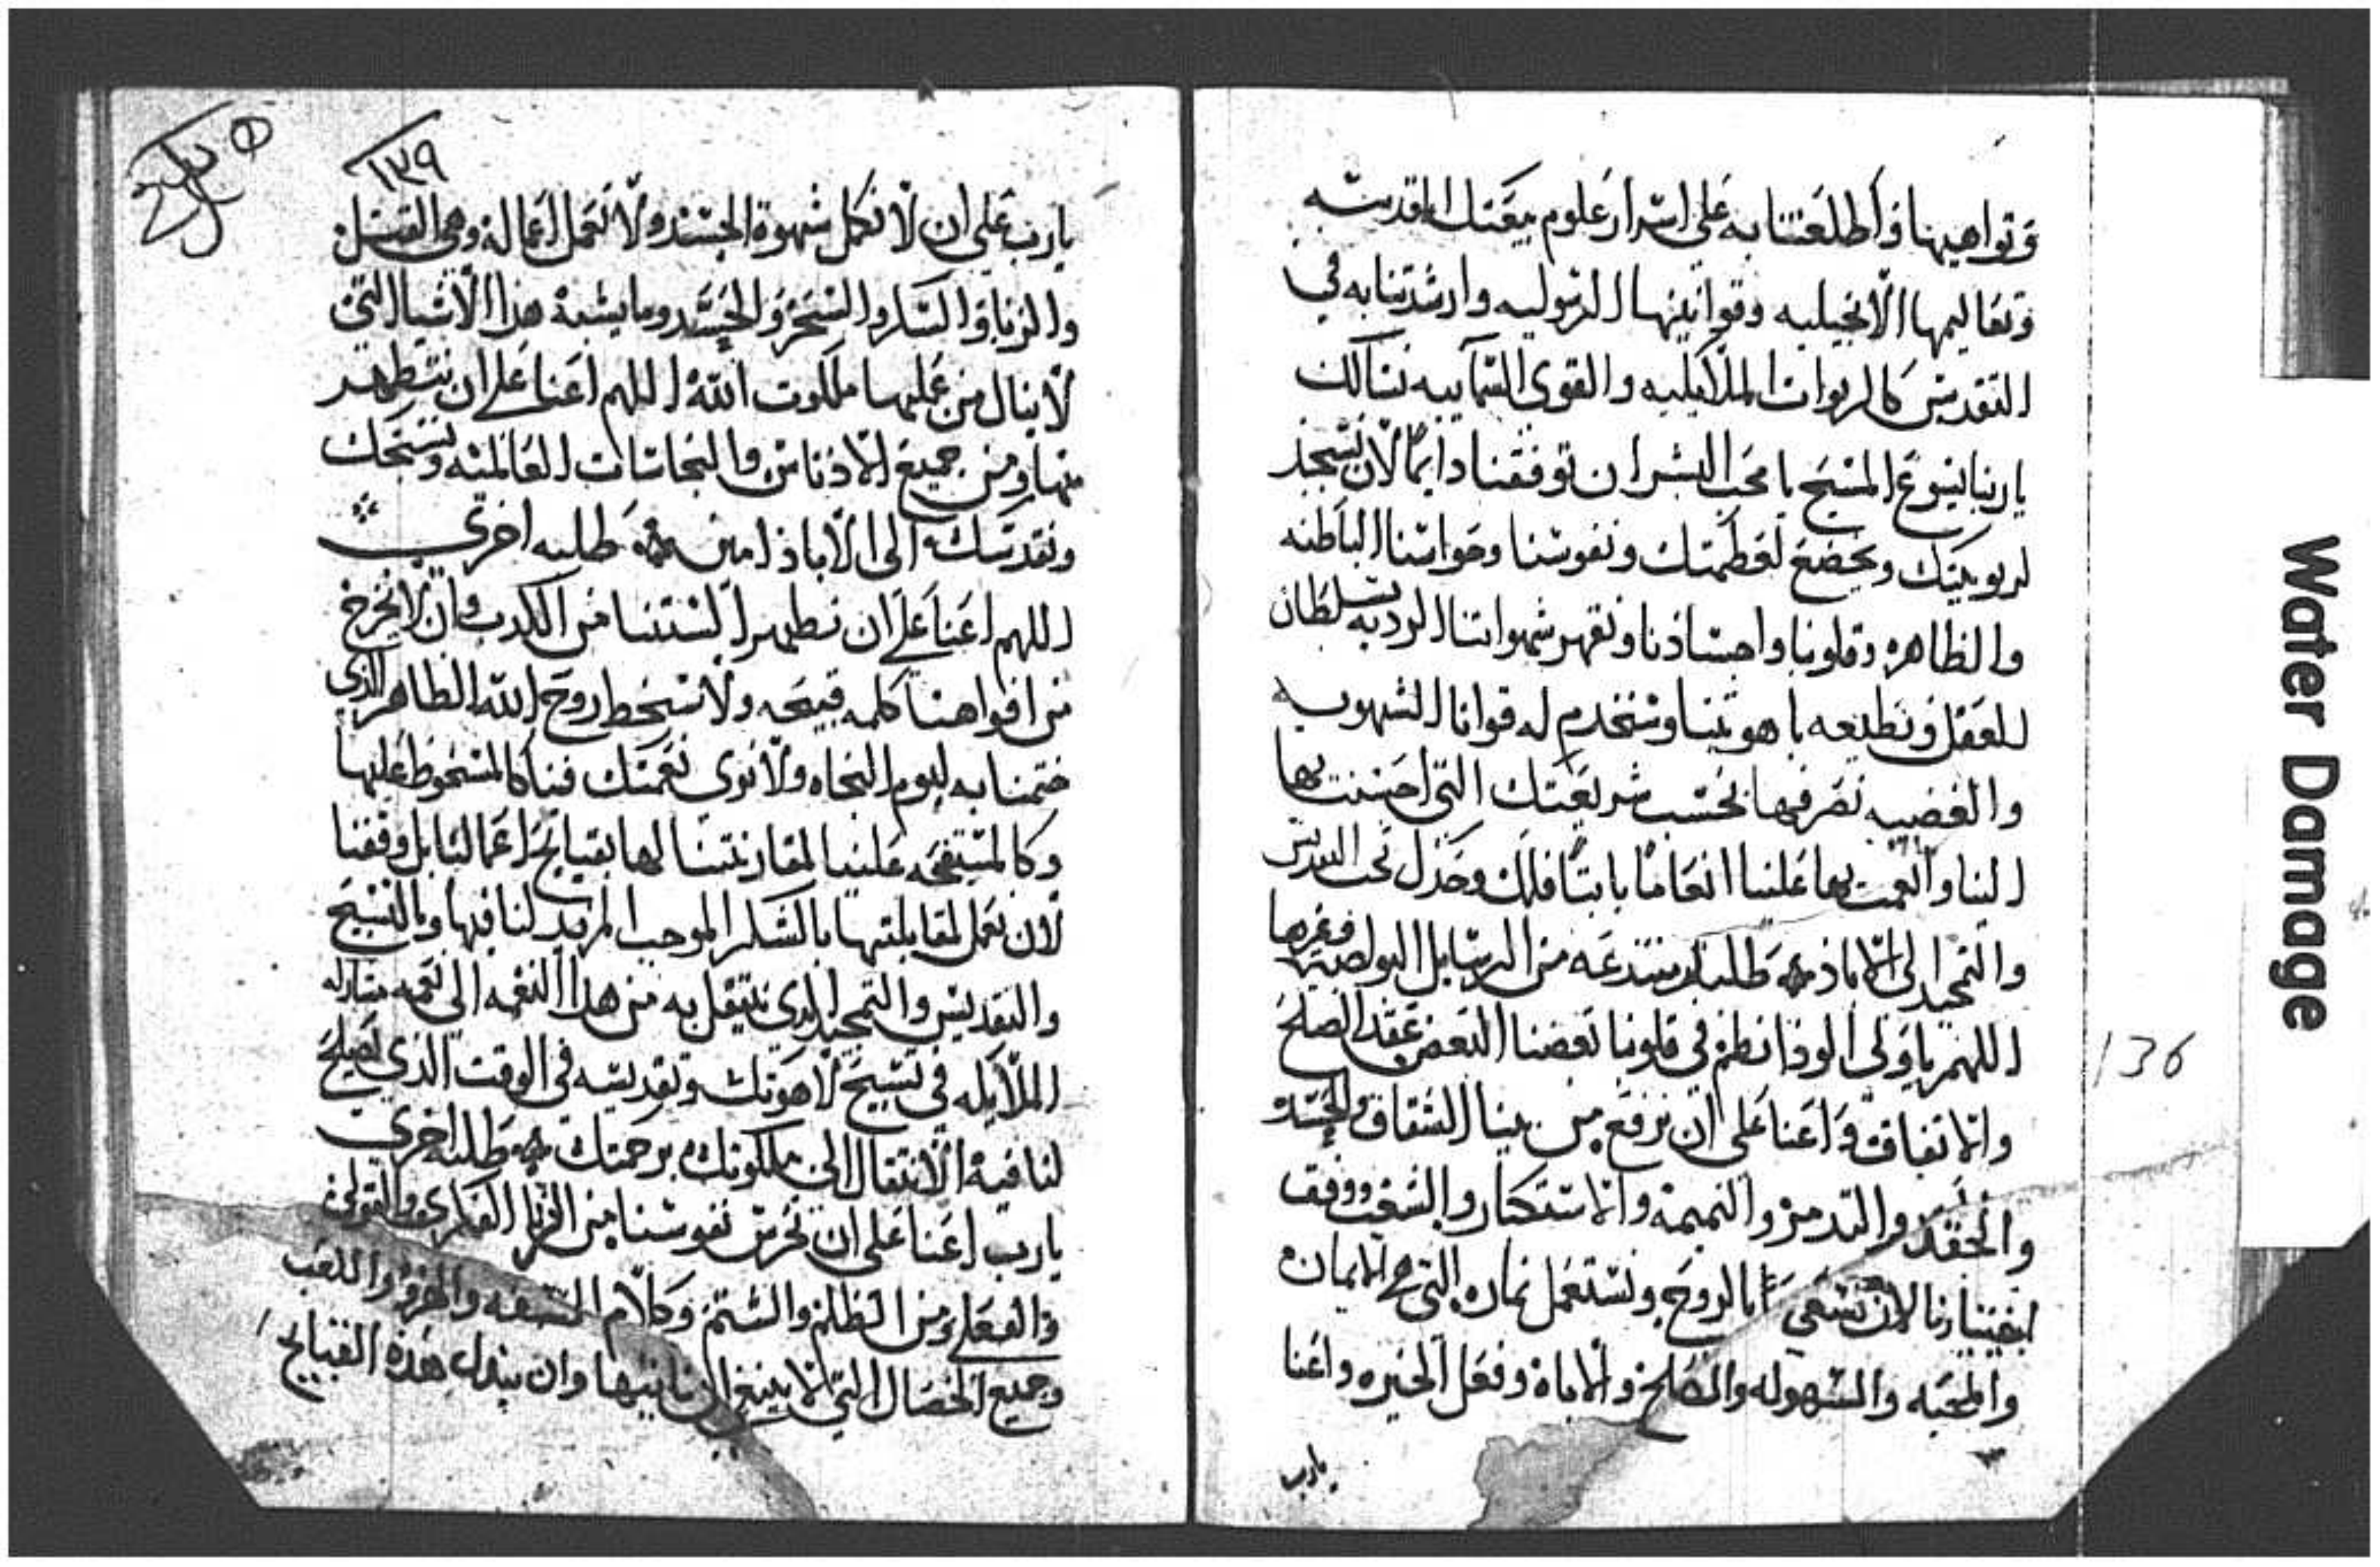 ونواهيها واطلعتنا به على اسرار علوم بيعتك المقدسه
وتعاليمها الانجيليه وقوانينها الرسوليه وارشدتنا به في
التقديس كالربوات الملاىكيه والقوى السمآييه نسالك
ياربنا يسوع المسيح يا محب البشر ان توفقنا دايمًا لان نسجد
لربوبيتك ونخضع لعظمتك ونفوسنا وحواسنا الباطنه
والظاهره وقلوبنا واجسادنا ونقهر شهواتنا الرديه بسلطان
العقل ونطيعه باهويتنا ونستخدم له قوانا الشهوىيه
والغضبيه نصرفها بحسب شريعتك التي احسنت بها
الينا وانعمت بها علينا انعامًا فلك وحدك نحب التقديس
والتمجيد الى الاباد طلبه من الرسايل البولصيه وغيرها
اللهم ياولى الوفا نظم في قلوبنا بعضنا البعض عقد الصلح
والاتفاق واعنا على ان نرفع من بيننا الشقاق والحسد
والحقد والتدمر والنميمه والاستكبار والشغب ووفق
اختيارنا لان نسعى بالروح ونستعمل ثماره التي هي الايمان
والمحبه والسهوله والصلح والاناة وفعل الخيره واعنا
يارب
136
Water Damage
١٣٩
يارب على ان لا نكمل شهوة الجسد ولا نعمل اعماله وهي القتل
والزنا والسكر والسحر والحسد وما يشبه هذا الاشيا التي
لا ينال من عملها ملكوت الله اللهم اعنا على ان نتطهر
منها ومن جميع الادناس والنجاسات العالميه ونسبحك
ونقدسك الى الاباد امين طلبه اخرى
اللهم اعنا على ان نطهر السنتنا من الكدب وان لا نخرج
من افواهنا كلمه قبيحه ولا نسخط روح الله الطاهر الذي
ختمنا به ليوم النجاه ولا نرى نعمتك فينا كالمسخوط عليها
وكالمستقبحه علينا لمقارنتنا لها بقبايح اعمالنا بل وفقنا
لان نعمل لمقابلتها بالشكر الموجب المزيد لنا فيها وبالتسبيح
والتقديس والتمجيد الدي ننتقل به من هدا النعمه الى نعمه مشاركه
الملايكه في تسبيح لاهوتك وتقديسه في الوقت الذي يصلح
لنا فيه الانتقال الى ملكوتك برحمتك طلبه اخرى
يارب اعنا على ان نحرس نفوسنا من الزنا الفكرى والقولى
والفعلى ومن الظلم والشتم وكلام السفه والهزو واللعب
وجميع الخصال التي لا ينبغي لنا ان ناتيها وان نبدل هذه القبايح